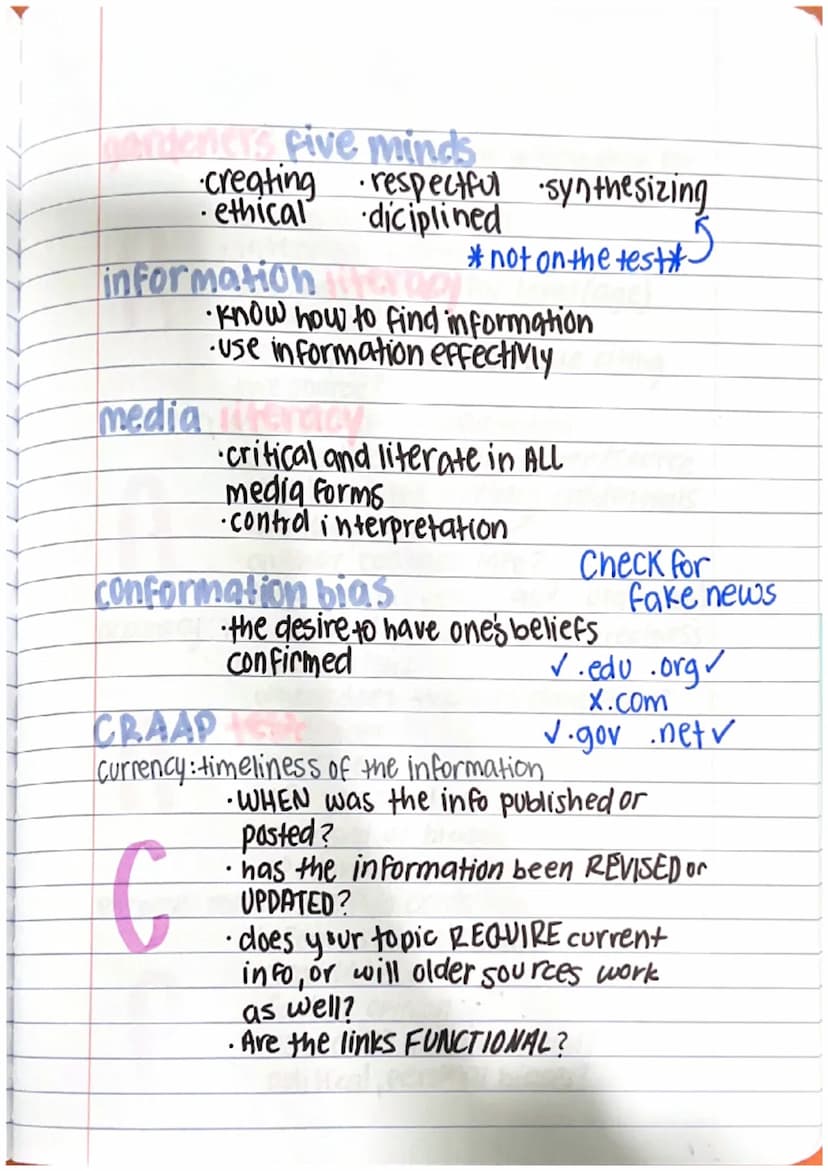 gardeners five minds
·creating ·respectful ·synthesizing
·ethical ·diciplined
*not on the test*
information literacy
·know how to find information
·use information effectivly
media literacy
·critical and literate in ALL
media forms
·control interpretation
Check for
fake news
conformation bias
·the desire to have one's beliefs
confirmed
✓ .edu .org ✓
x .com
✓ .gov .net ✓
CRAAP test
currency: timeliness of the information
C
·WHEN was the info published or
posted?
·has the information been REVISED or
UPDATED?
·does your topic REQUIRE current
info, or will older sources work
as well?
·Are the links FUNCTIONAL?